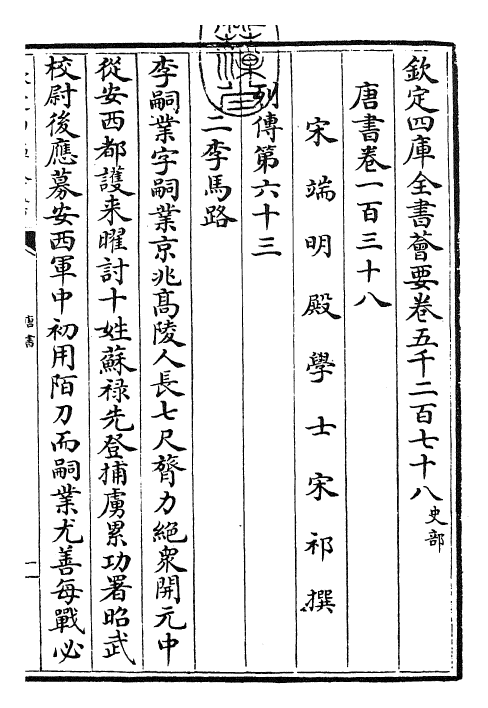 欽定四庫全書薈要卷五千二百七十八史部
唐書卷一百三十八
宋端明殿學士宋祁撰
列傳第六十三
二李馬路
李嗣業字嗣業京兆髙陵人長七尺膂力絶衆開元中
從安西都護来曜討十姓蘇禄先登捕虜累功署昭武
校尉後應募安西軍中初用陌刀而嗣業尤善每戰必
唐書
一